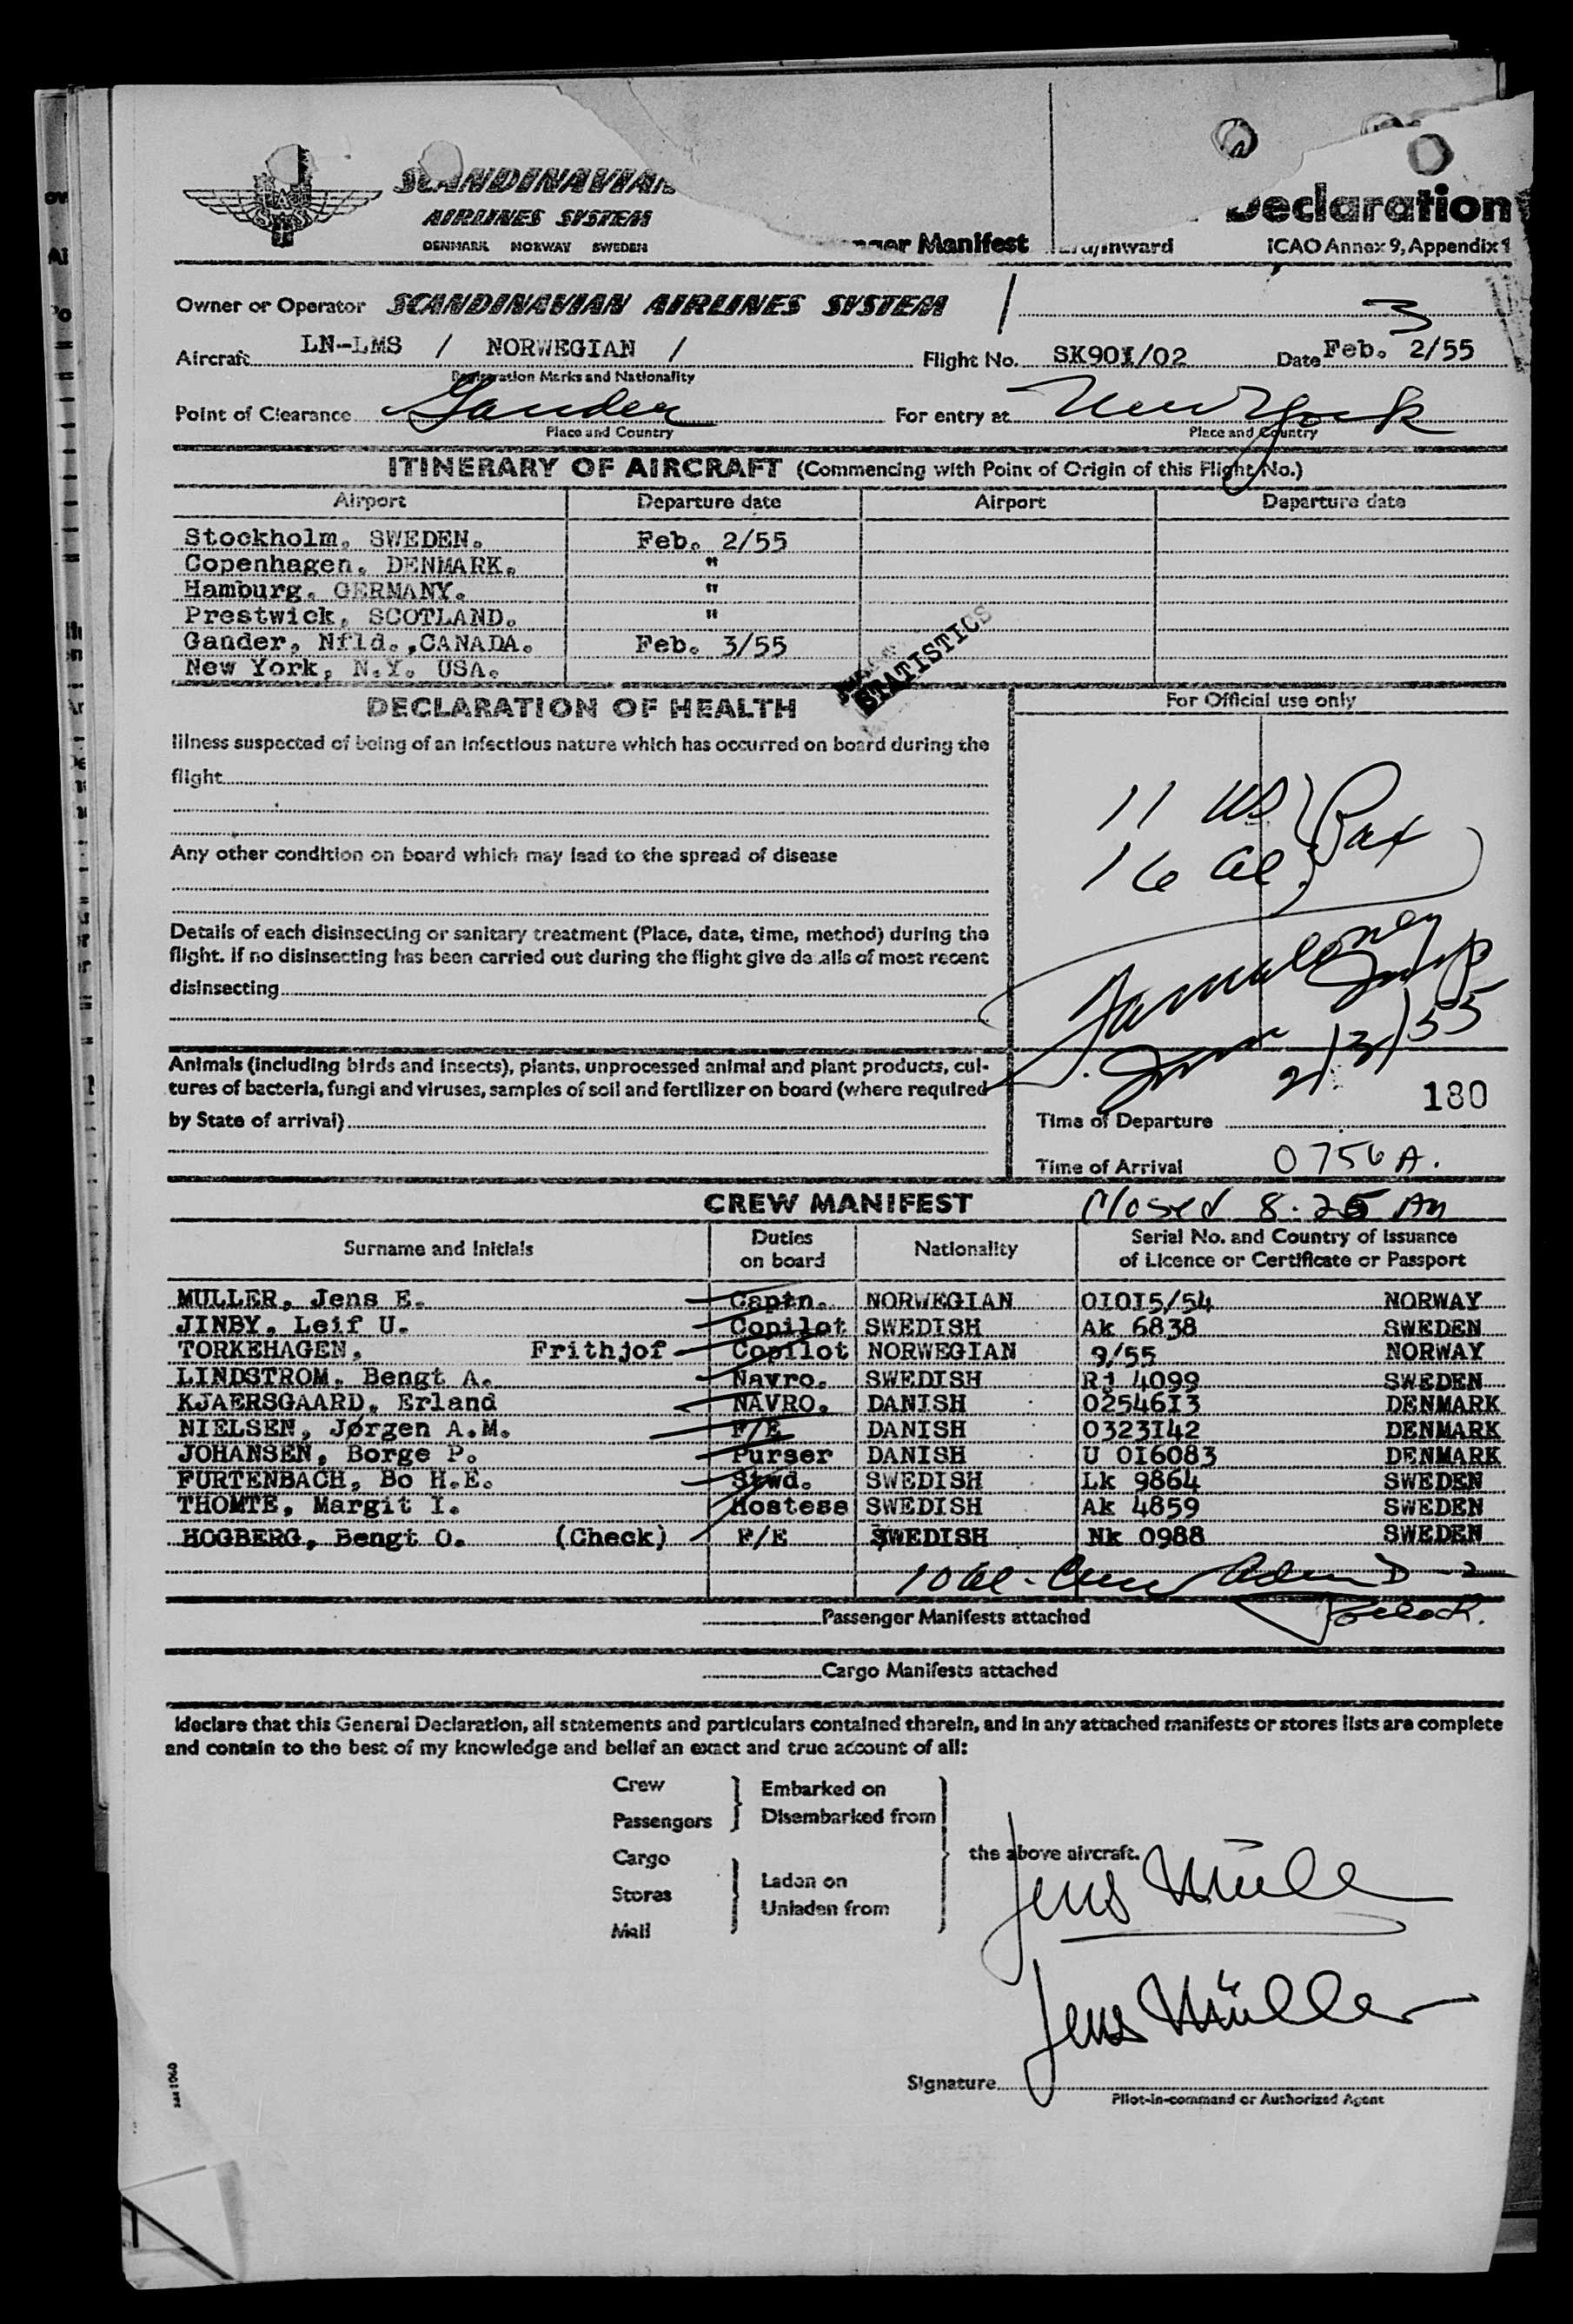 SCANDINAVIAN
AIRLINES SYSTEM
DENMARK NORWAY SWEDEN
Manifest
Declaration
/Inward
ICAO Annex 9, Appendix 1
Owner or Operator SCANDINAVIAN AIRLINES SYSTEM
3
Aircraft LN-LMS / NORWEGIAN / Flight No. SK901/02 Date Feb. 2/55
Registration Marks and Nationality
Point of Clearance Gander For entry at New York
Place and Country Place and Country
ITINERARY OF AIRCRAFT (Commencing with Point of Origin of this Flight No.)
Airport Departure date Airport Departure date
Stockholm, SWEDEN. Feb. 2/55
Copenhagen, DENMARK. "
Hamburg, GERMANY. "
Prestwick, SCOTLAND. "
Gander, Nfld.,CANADA. Feb. 3/55
New York, N.Y. USA.
STATISTICS
DECLARATION OF HEALTH
Illness suspected of being of an infectious nature which has occurred on board during the
flight
Any other condition on board which may lead to the spread of disease
Details of each disinsecting or sanitary treatment (Place, date, time, method) during the
flight. If no disinsecting has been carried out during the flight give details of most recent
disinsecting
Animals (including birds and insects), plants, unprocessed animal and plant products, cul-
tures of bacteria, fungi and viruses, samples of soil and fertilizer on board (where required
by State of arrival)
For Official use only
11 US
16 al. Pax
2/3/55
180
Time of Departure
Time of Arrival 0756 A.
CREW MANIFEST Closed 8.25 AM
Surname and Initials Duties on board Nationality Serial No. and Country of Issuance of Licence or Certificate or Passport
MULLER, Jens E. Captn. NORWEGIAN 01015/54 NORWAY
JINBY, Leif U. Copilot SWEDISH Ak 6838 SWEDEN
TORKEHAGEN, Frithjof Copilot NORWEGIAN 9/55 NORWAY
LINDSTROM, Bengt A. Navro. SWEDISH Rj 4099 SWEDEN
KJAERSGAARD, Erland NAVRO. DANISH 0254613 DENMARK
NIELSEN, Jørgen A.M. F/E DANISH 0323142 DENMARK
JOHANSEN, Borge P. Purser DANISH U 016083 DENMARK
FURTENBACH, Bo H.E. Stwd. SWEDISH Lk 9864 SWEDEN
THOMTE, Margit I. Hostess SWEDISH Ak 4859 SWEDEN
HOGBERG, Bengt O. (Check) F/E SWEDISH Nk 0988 SWEDEN
10 al. Crew Adm D-2
Passenger Manifests attached
Cargo Manifests attached
I declare that this General Declaration, all statements and particulars contained therein, and in any attached manifests or stores lists are complete
and contain to the best of my knowledge and belief an exact and true account of all:
Crew
Passengers
Embarked on
Disembarked from
Cargo
Stores
Mail
Laden on
Unladen from
the above aircraft.
Jens Müller
Jens Müller
Signature
Pilot-in-command or Authorized Agent